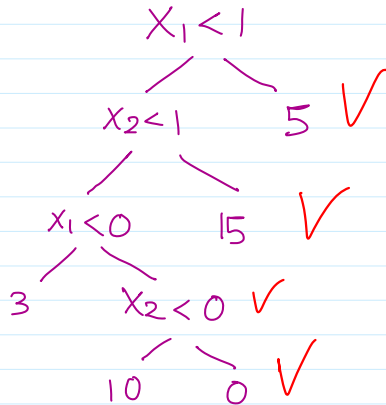 X₁ < 1
X₂ < 1 5 ✓
X₁ < 0 15 ✓
3 X₂ < 0 ✓
10 0 ✓